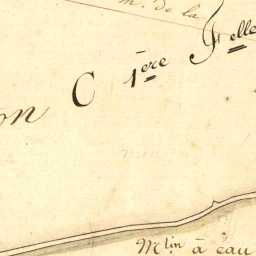 m. de la
on C 1ère Felle
Mlin à eau